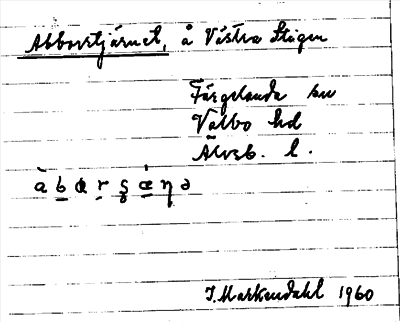 Abborrtjärnet, å Västra Stigen
Färgelanda sn
Valbo hd
Älvsb. l.
J. Markendahl 1960